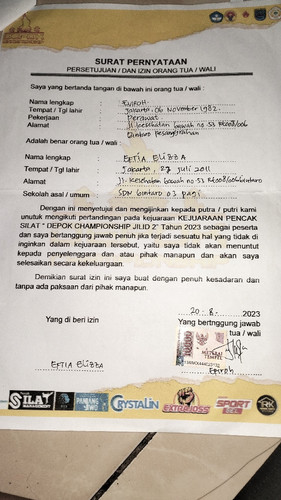 SURAT PERNYATAAN
PERSETUJUAN / DAN IZIN ORANG TUA / WALI
Saya yang bertanda tangan di bawah ini orang tua / wali :
Nama lengkap :
Tempat / Tgl lahir : Jakarta, 06 November 1982.
Pekerjaan : Perawat
Alamat : Jl. Kesehatan bawah no 53
Bintaro Pesanggrahan
Adalah benar orang tua / wali :
Nama lengkap : EFTIA ELIBBA
Tempat / Tgl lahir : Jakarta, 27 juli 2011
Alamat : Jl. Kesehatan bawah no 53
Sekolah asal / umum : SDN bintaro 03 pagi
Dengan ini menyetujui dan mengijinkan kepada putra / putri kami
unutuk mengikuti pertandingan pada kejuaraan KEJUARAAN PENCAK
SILAT " DEPOK CHAMPIONSHIP JILID 2" Tahun 2023 sebagai peserta
dan saya bertanggung jawab penuh jika terjadi sesuatu hal yang tidak di
inginkan dalam kejuaraan tersebut, yaitu saya tidak akan menuntut
kepada penyelenggara dan atau pihak manapun dan akan saya
selesaikan secara kekeluargaan.
Demikian surat izin ini saya buat dengan penuh kesadaran dan
tanpa ada paksaan dari pihak manapun.
20 - 8 - 2023
Yang di beri izin Yang bertnggung jawab
tua / wali
10000
METERAI
TEMPEL
EFTIA ELIBBA
SILAT
MANAGEMENT
CRYSTALIN
EXTRA JOSS
SPORT
RK